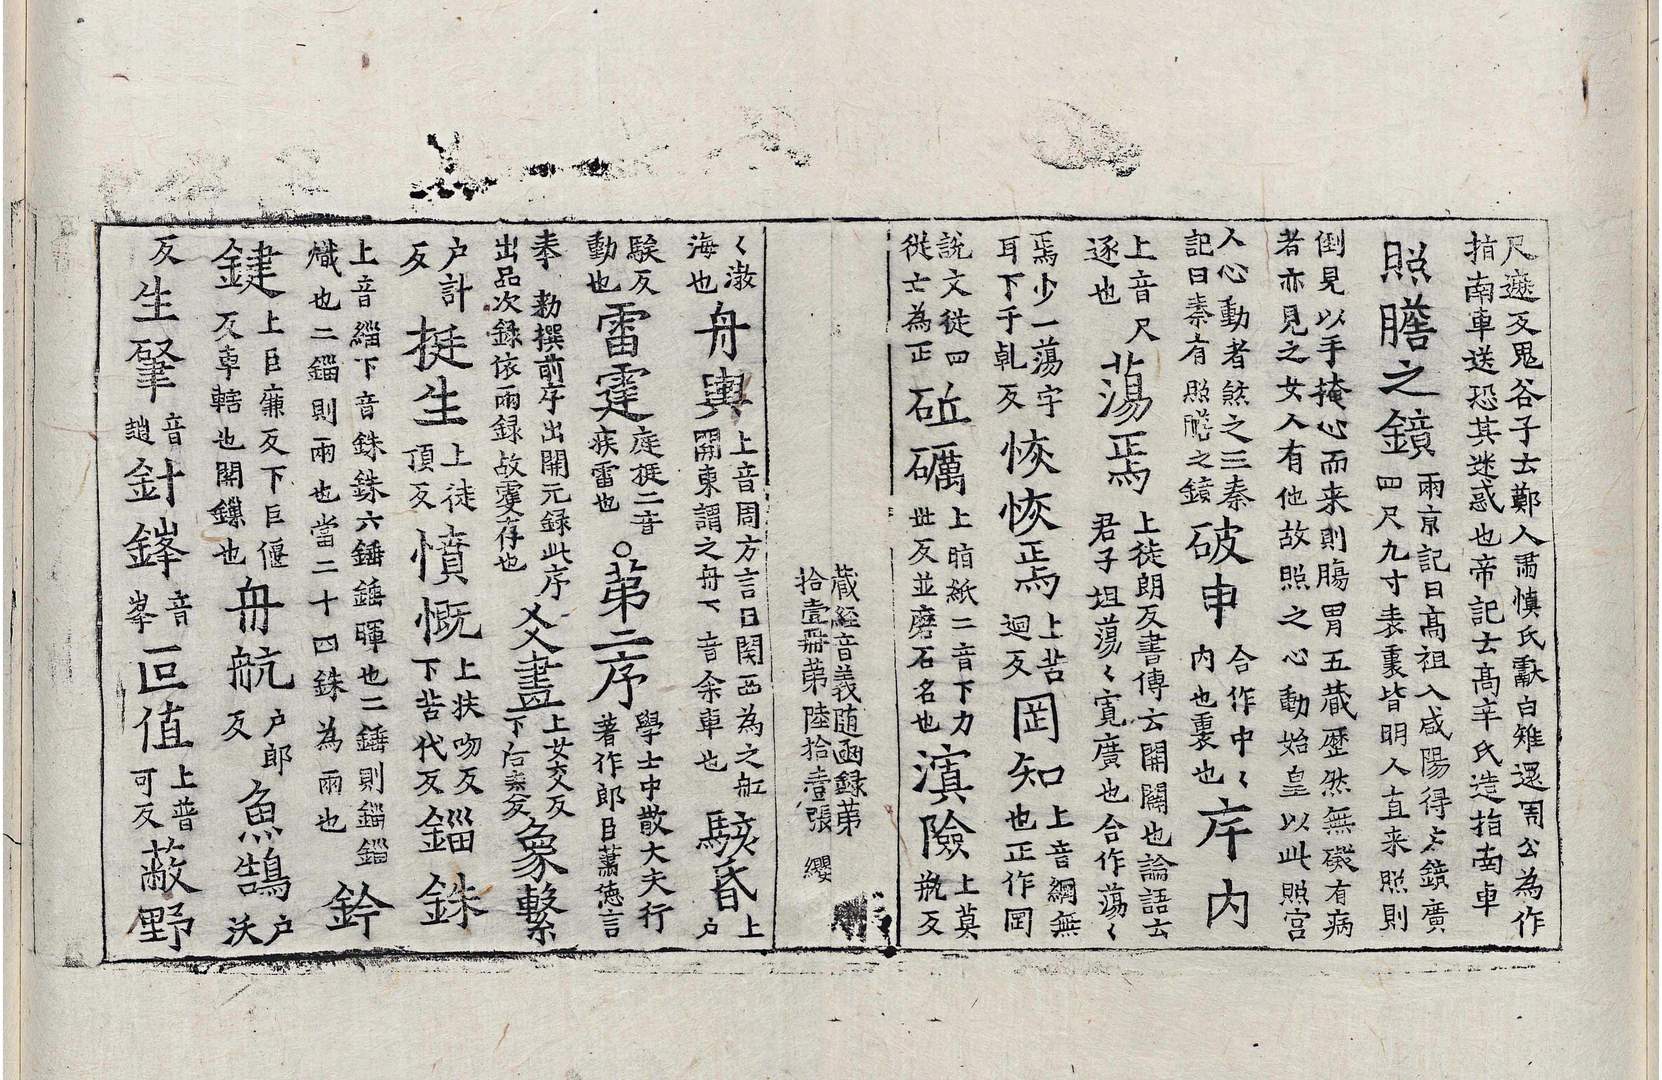 尺遮反鬼谷子云鄭人肅慎氏獻白雉還周公為作
指南車送恐其迷惑也帝記云高辛氏造指南車
照膽之鏡 兩京記曰高祖入咸陽得之鏡廣
四尺九寸表裏皆明人直来照則
倒見以手掩心而来則腸胃五蔵歷然無礙有病
者亦見之女人有他故照之心動始皇以此照宮
人心動者煞之三秦
記曰秦有照膽之鏡 破申 合作中〻
内也裏也 庁内
上音尺
逐也 蕩焉 上徒朗反書傳云開闢也論語云
君子坦蕩〻寛廣也合作蕩〻
焉少一蕩字
耳下于乹反 恢恢焉 上苦
迴反 罔知 上音綱無
也正作罔
說文從四
從亡為正 砥礪 上音紙二音下力
世反並磨石名也 濵險 上莫
瓶反
蔵經音義随函録第
拾壹冊第陸拾壹張 纓
〻激
海也 舟輿 上音周方言曰関西為之舡
關東謂之舟下音余車也 駭昏 上
户
駭反
動也 雷霆 庭挺二音
疾雷也 〇第二序 學士中散大夫行
著作郎臣蕭徳言
奉 勑撰前序出開元録此序
出品次録依兩録故䨱存也 爻畫 上爻交反
下 象繫
户計
反 挺生 上徒
頂反 憤慨 上扶吻反
下苦代反 錙銖
上音緇下音銖銖六錘錘暉也二錘則錙錙
熾也二錙則兩也當二十四銖為兩也 鈐
鍵 上巨廉反下巨偃
反車轄也開鏁也 舟航 户郎
反 魚鵠 户
沃
反 生肇 音
趙 針鋒 音
峯 叵值 上普
可反 蔽野